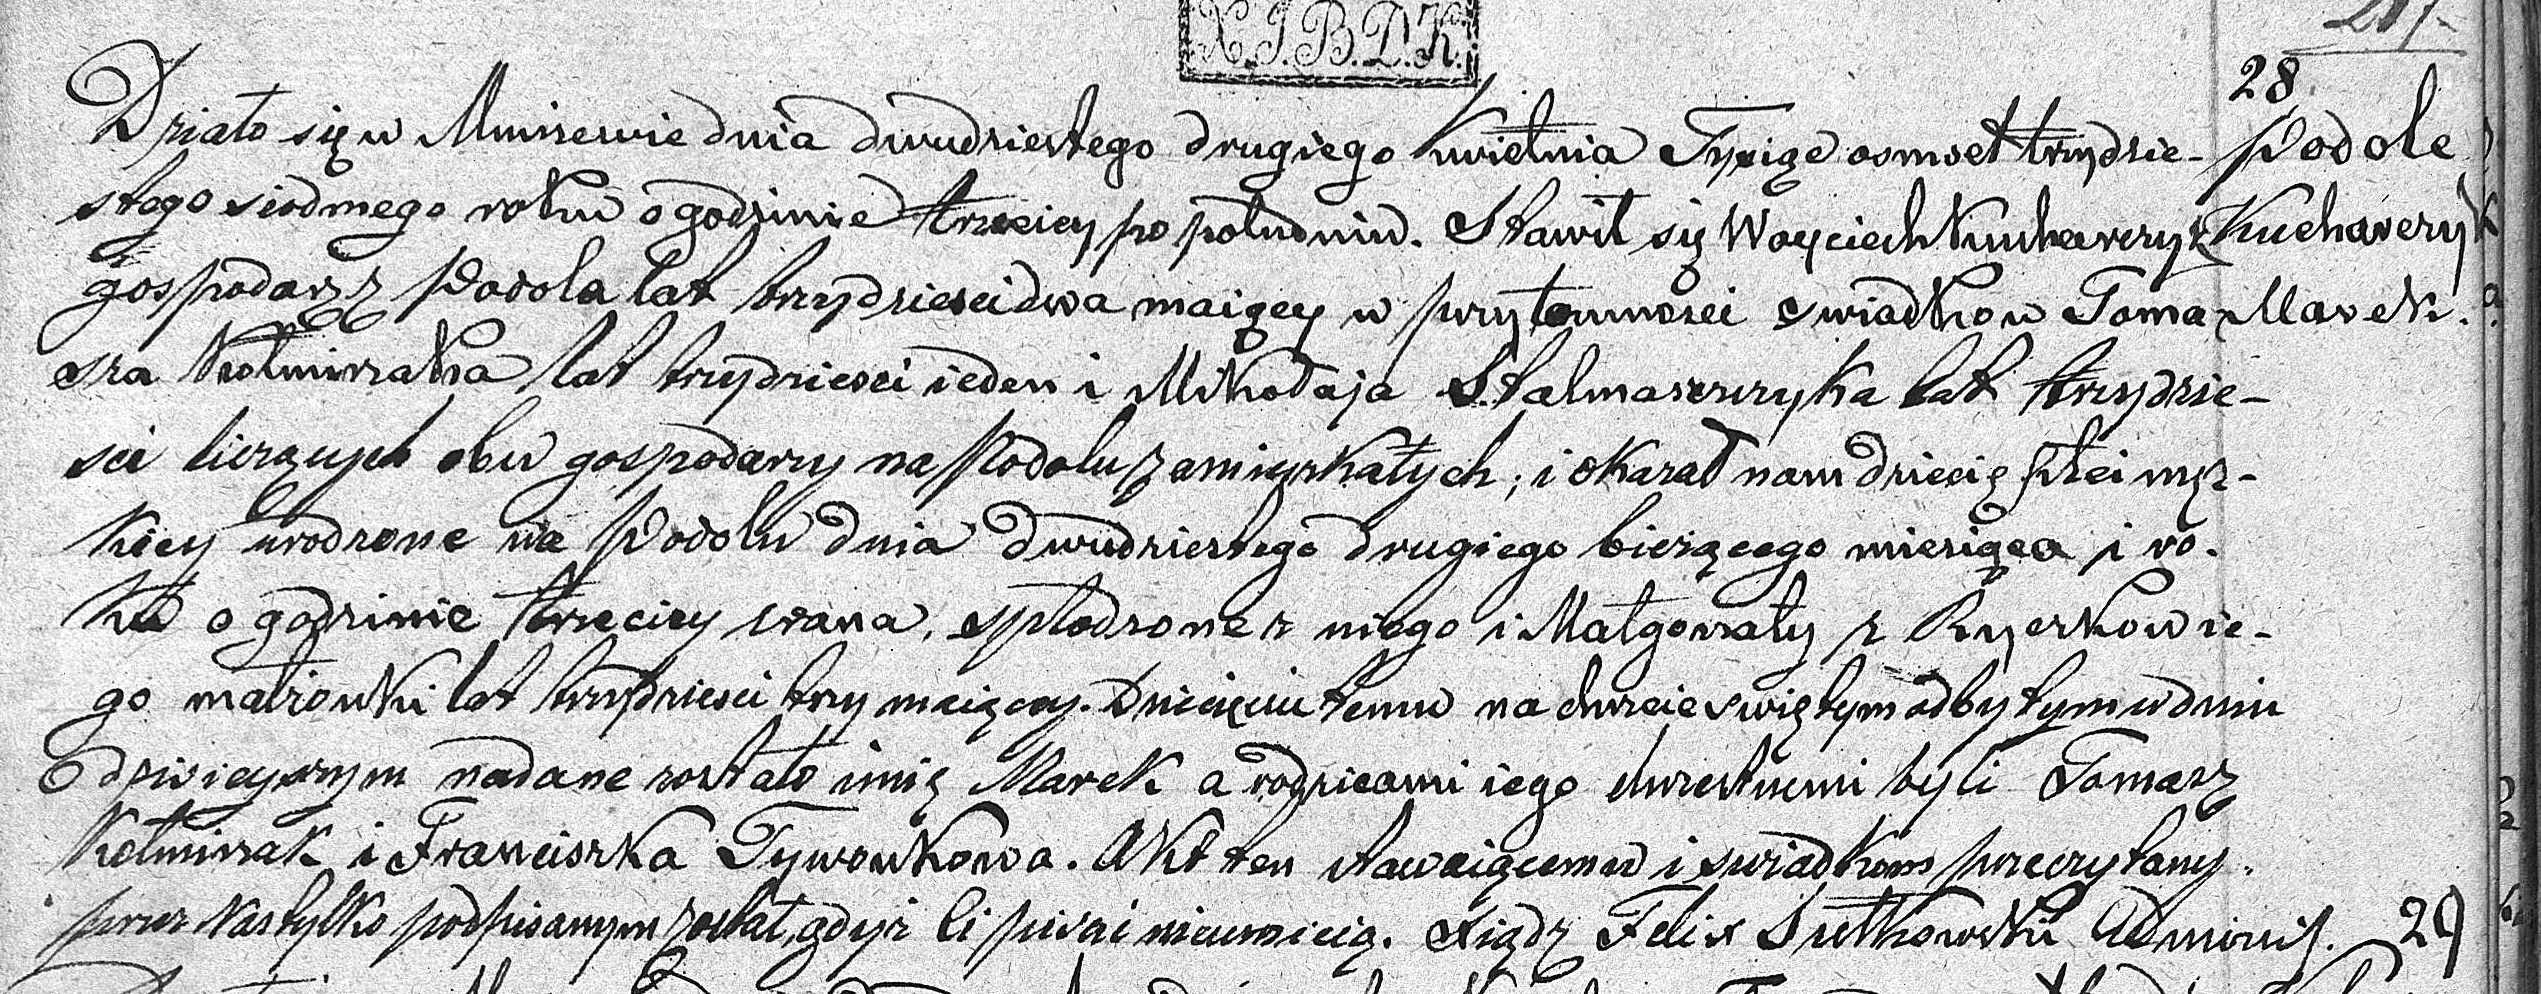 X.J.B.D.K.
28
Działo się w Mniszewie dnia dwudziestego drugiego Kwietnia Tysiąc osmset trzydzie- Podole
stego siodmego roku o godzinie trzeciey po południu. Stawił się Woyciech Kucharczyk Kucharczyk
gospodarz z Podola lat trzydziesci dwa maiący w przytomnosci swiadkow Toma- Marek.
sza Kołmirzaka lat trzydziesci ieden i Mikołaja Stalmaszczyka lat trzydzie-
sci liczących obu gospodarzy na Podolu zamieszkałych; i okazał nam dziecię płci męz-
kiey urodzone na Podolu dnia dwudziestego drugiego bieżącego miesiąca i ro-
ku o godzinie trzeciey zrana, spłodzone z niego i Małgorzaty z Ryszkowie-
go małżonki lat trzydziesci trzy maiącey. Dziecięciu temu na chrzcie swiętym odbytym w dniu
dzisieyszym nadane zostało imię Marek a rodzicami iego chrzestnemi byli Tomasz
Kołmirzak i Franciszka Tywonkowa. Akt ten stawaiącemu i swiadkom przeczytany
przez Nas tylko podpisanym został, gdyż ci pisać nieumieią. Xiądz Felix Sułkowski Administ. 29